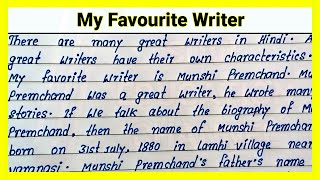 My Favourite Writer
There are many great writers in Hindi. A
great writers have their own characteristics.
My favorite writer is Munshi Premchand. Mu
Premchand was a great writer, he wrote many
stories. If we talk about the biography of M
Premchand, then the name of Munshi Premchan
born on 31st July, 1880 in Lamhi village near
varanasi. Munshi Premchand's father's name